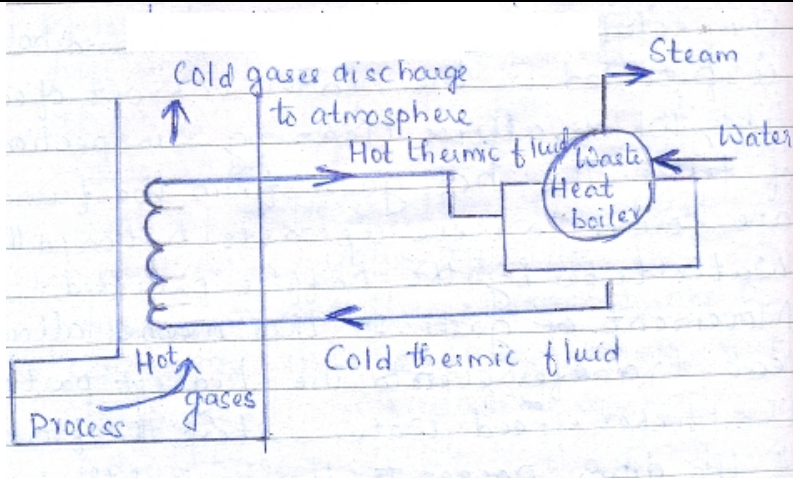 Steam
Cold gases discharge
to atmosphere
Water
Hot thermic fluid
Waste
Heat
boiler
Cold thermic fluid
Hot
gases
Process